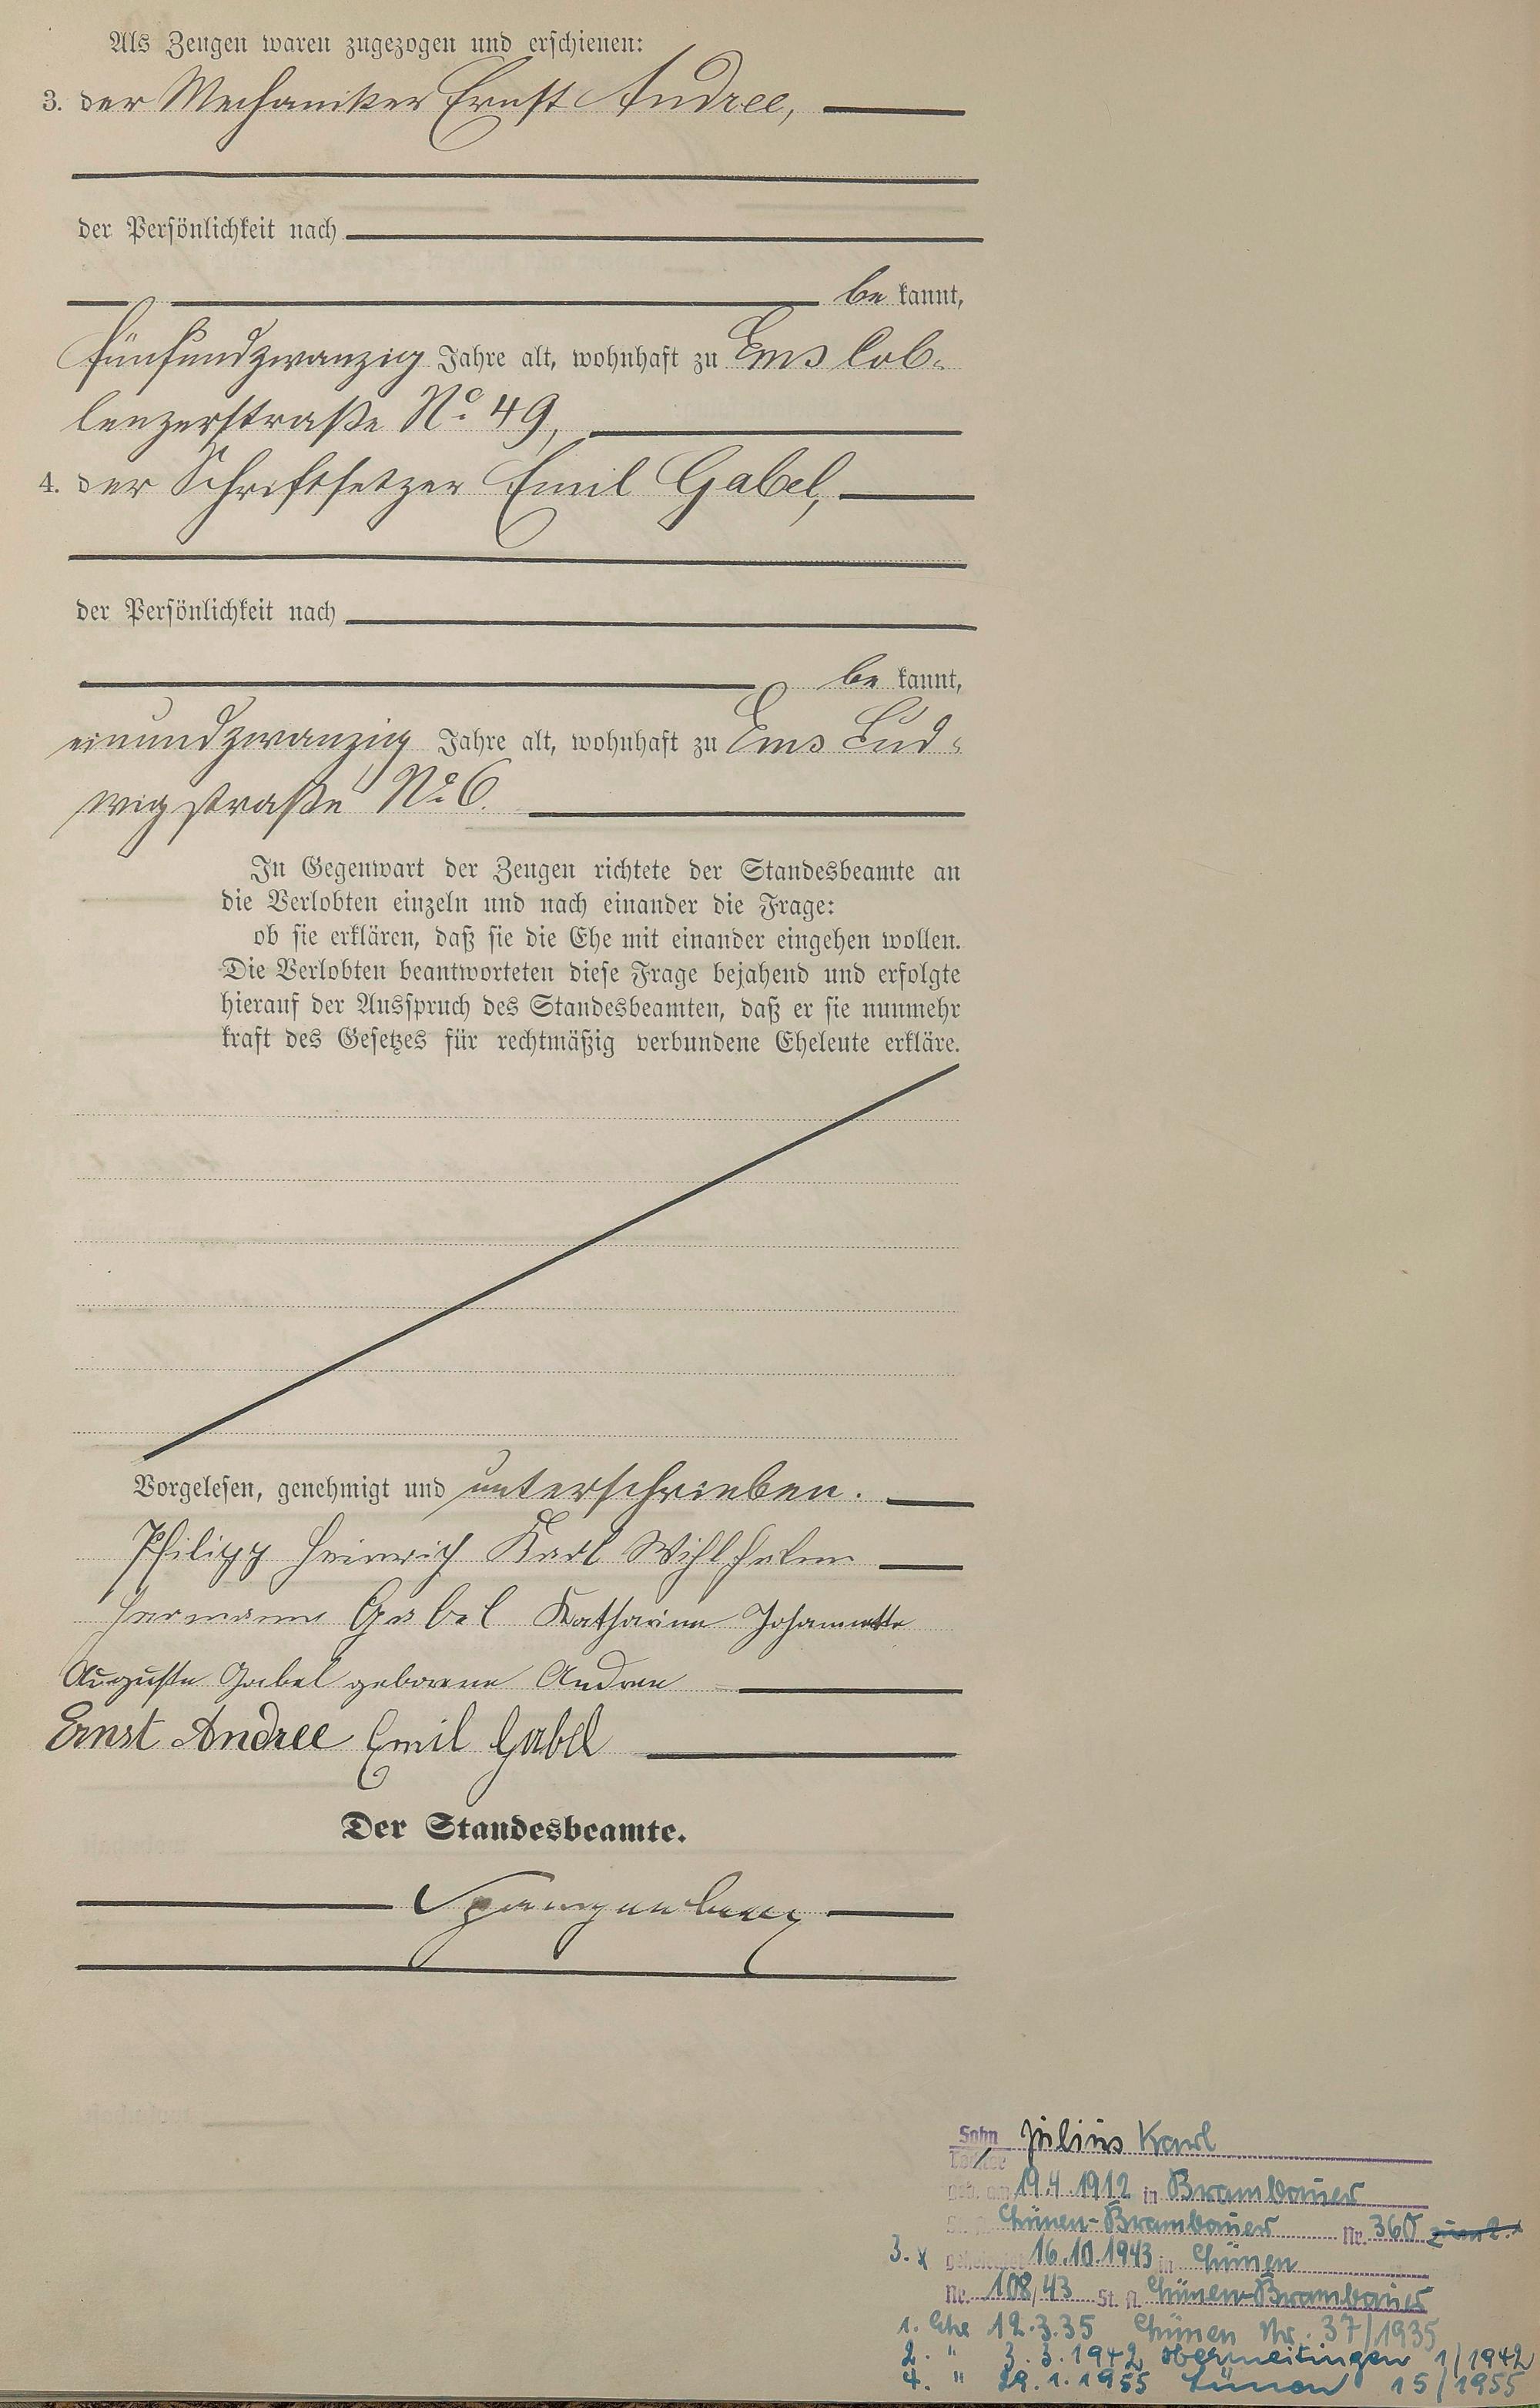 Als Zeugen waren zugezogen und erschienen:
3. der Mechaniker Ernst Andree,
der Persönlichkeit nach
be kannt,
fünfundzwanzig Jahre alt, wohnhaft zu Ems Cob-
lenzerstraße No. 49,
4. der Schriftsetzer Emil Gabel,
der Persönlichkeit nach
be kannt,
einundzwanzig Jahre alt, wohnhaft zu Ems Lud-
wigstraße No. 6.
In Gegenwart der Zeugen richtete der Standesbeamte an
die Verlobten einzeln und nach einander die Frage:
ob sie erklären, daß sie die Ehe mit einander eingehen wollen.
Die Verlobten beantworteten diese Frage bejahend und erfolgte
hierauf der Ausspruch des Standesbeamten, daß er sie nunmehr
kraft des Gesetzes für rechtmäßig verbundene Eheleute erkläre.
Vorgelesen, genehmigt und unterschrieben.
Philipp Heinrich Karl Wihlhelm
Hermann Gabel Katharina Johannette
Auguste Gabel geborene Andree
Ernst Andree Emil Gabel
Der Standesbeamte.
Spangenberg
Sohn Julius Karl
Tochter
geb. am 19.4.1912 in Brambauer
St. A. Lünen-Brambauer Nr. 360
3. x geheiratet 16.10.1943 in Lünen
Nr. 108/43 St. A. Lünen-Brambauer
1. Ehe 12.3.35 Lünen Nr. 37/1935
2. " 3.3.1942 Obermeitingen 1/1942
4. " 29.1.1955 Lünen 15/1955